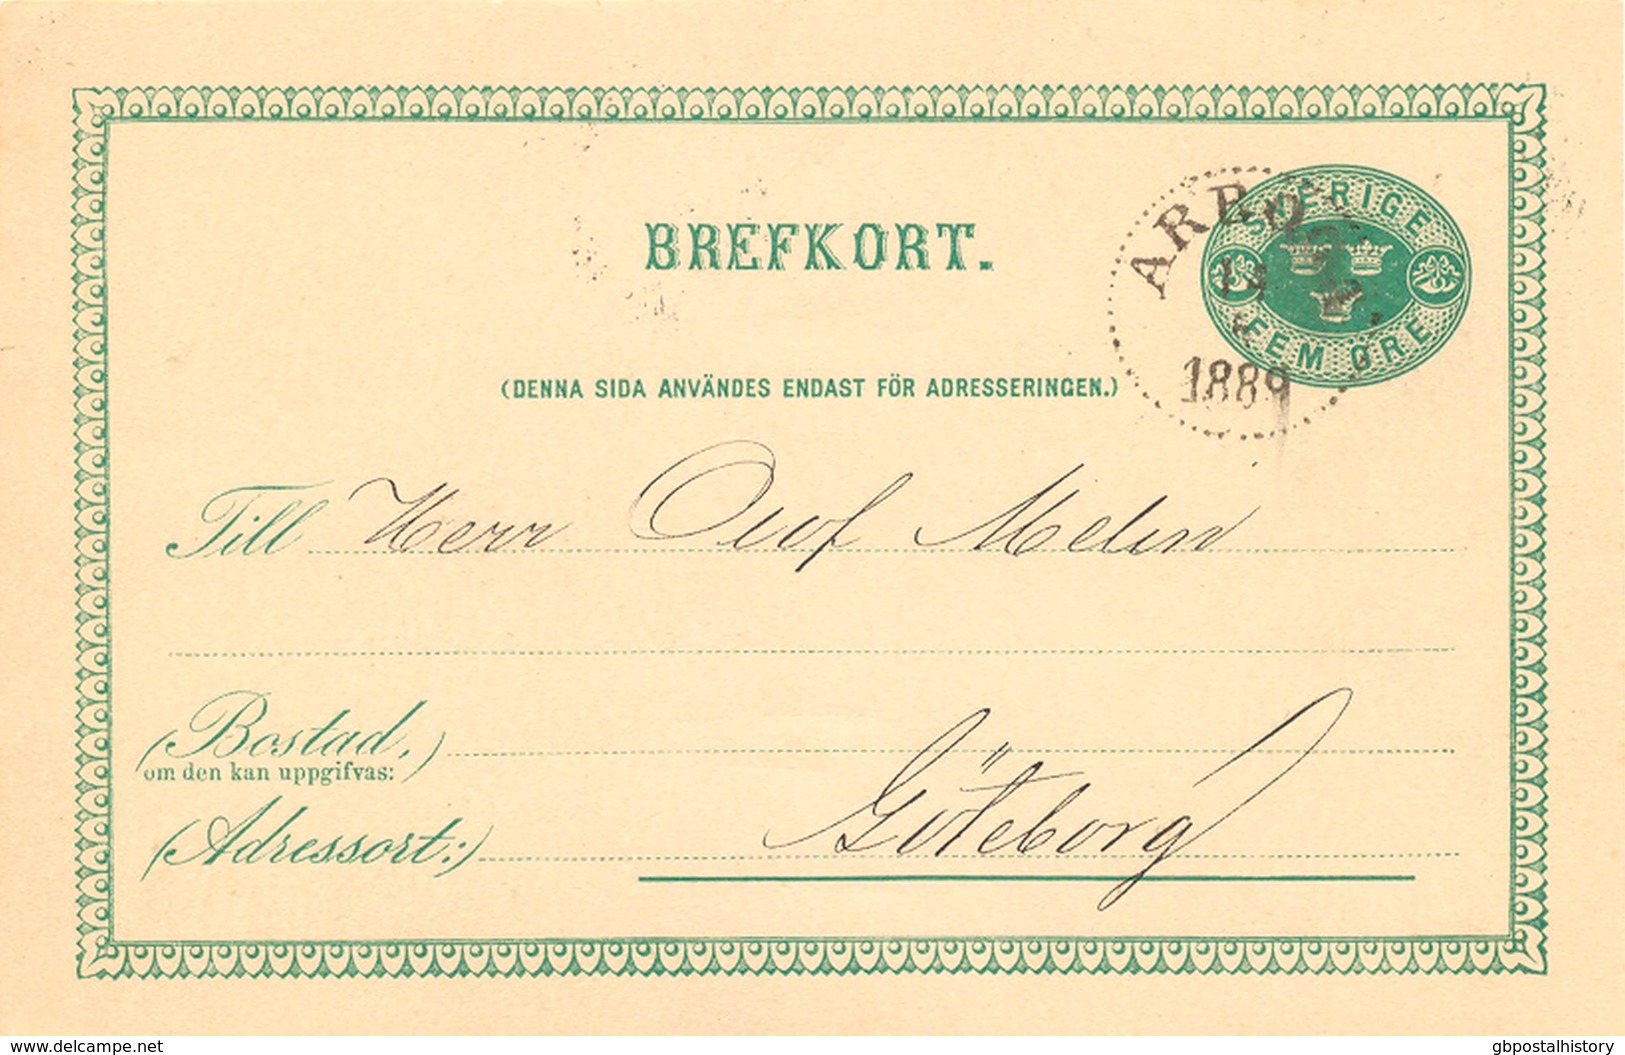 BREFKORT.
SVERIGE
FEM ØRE
ARBO
14
1889
(DENNA SIDA ANVÄNDES ENDAST FÖR ADRESSERINGEN.)
Till Herr Olof Melin
(Bostad,)
om den kan uppgifvas:
(Adressort:) Göteborg
www.delcampe.net
gbpostalhistory